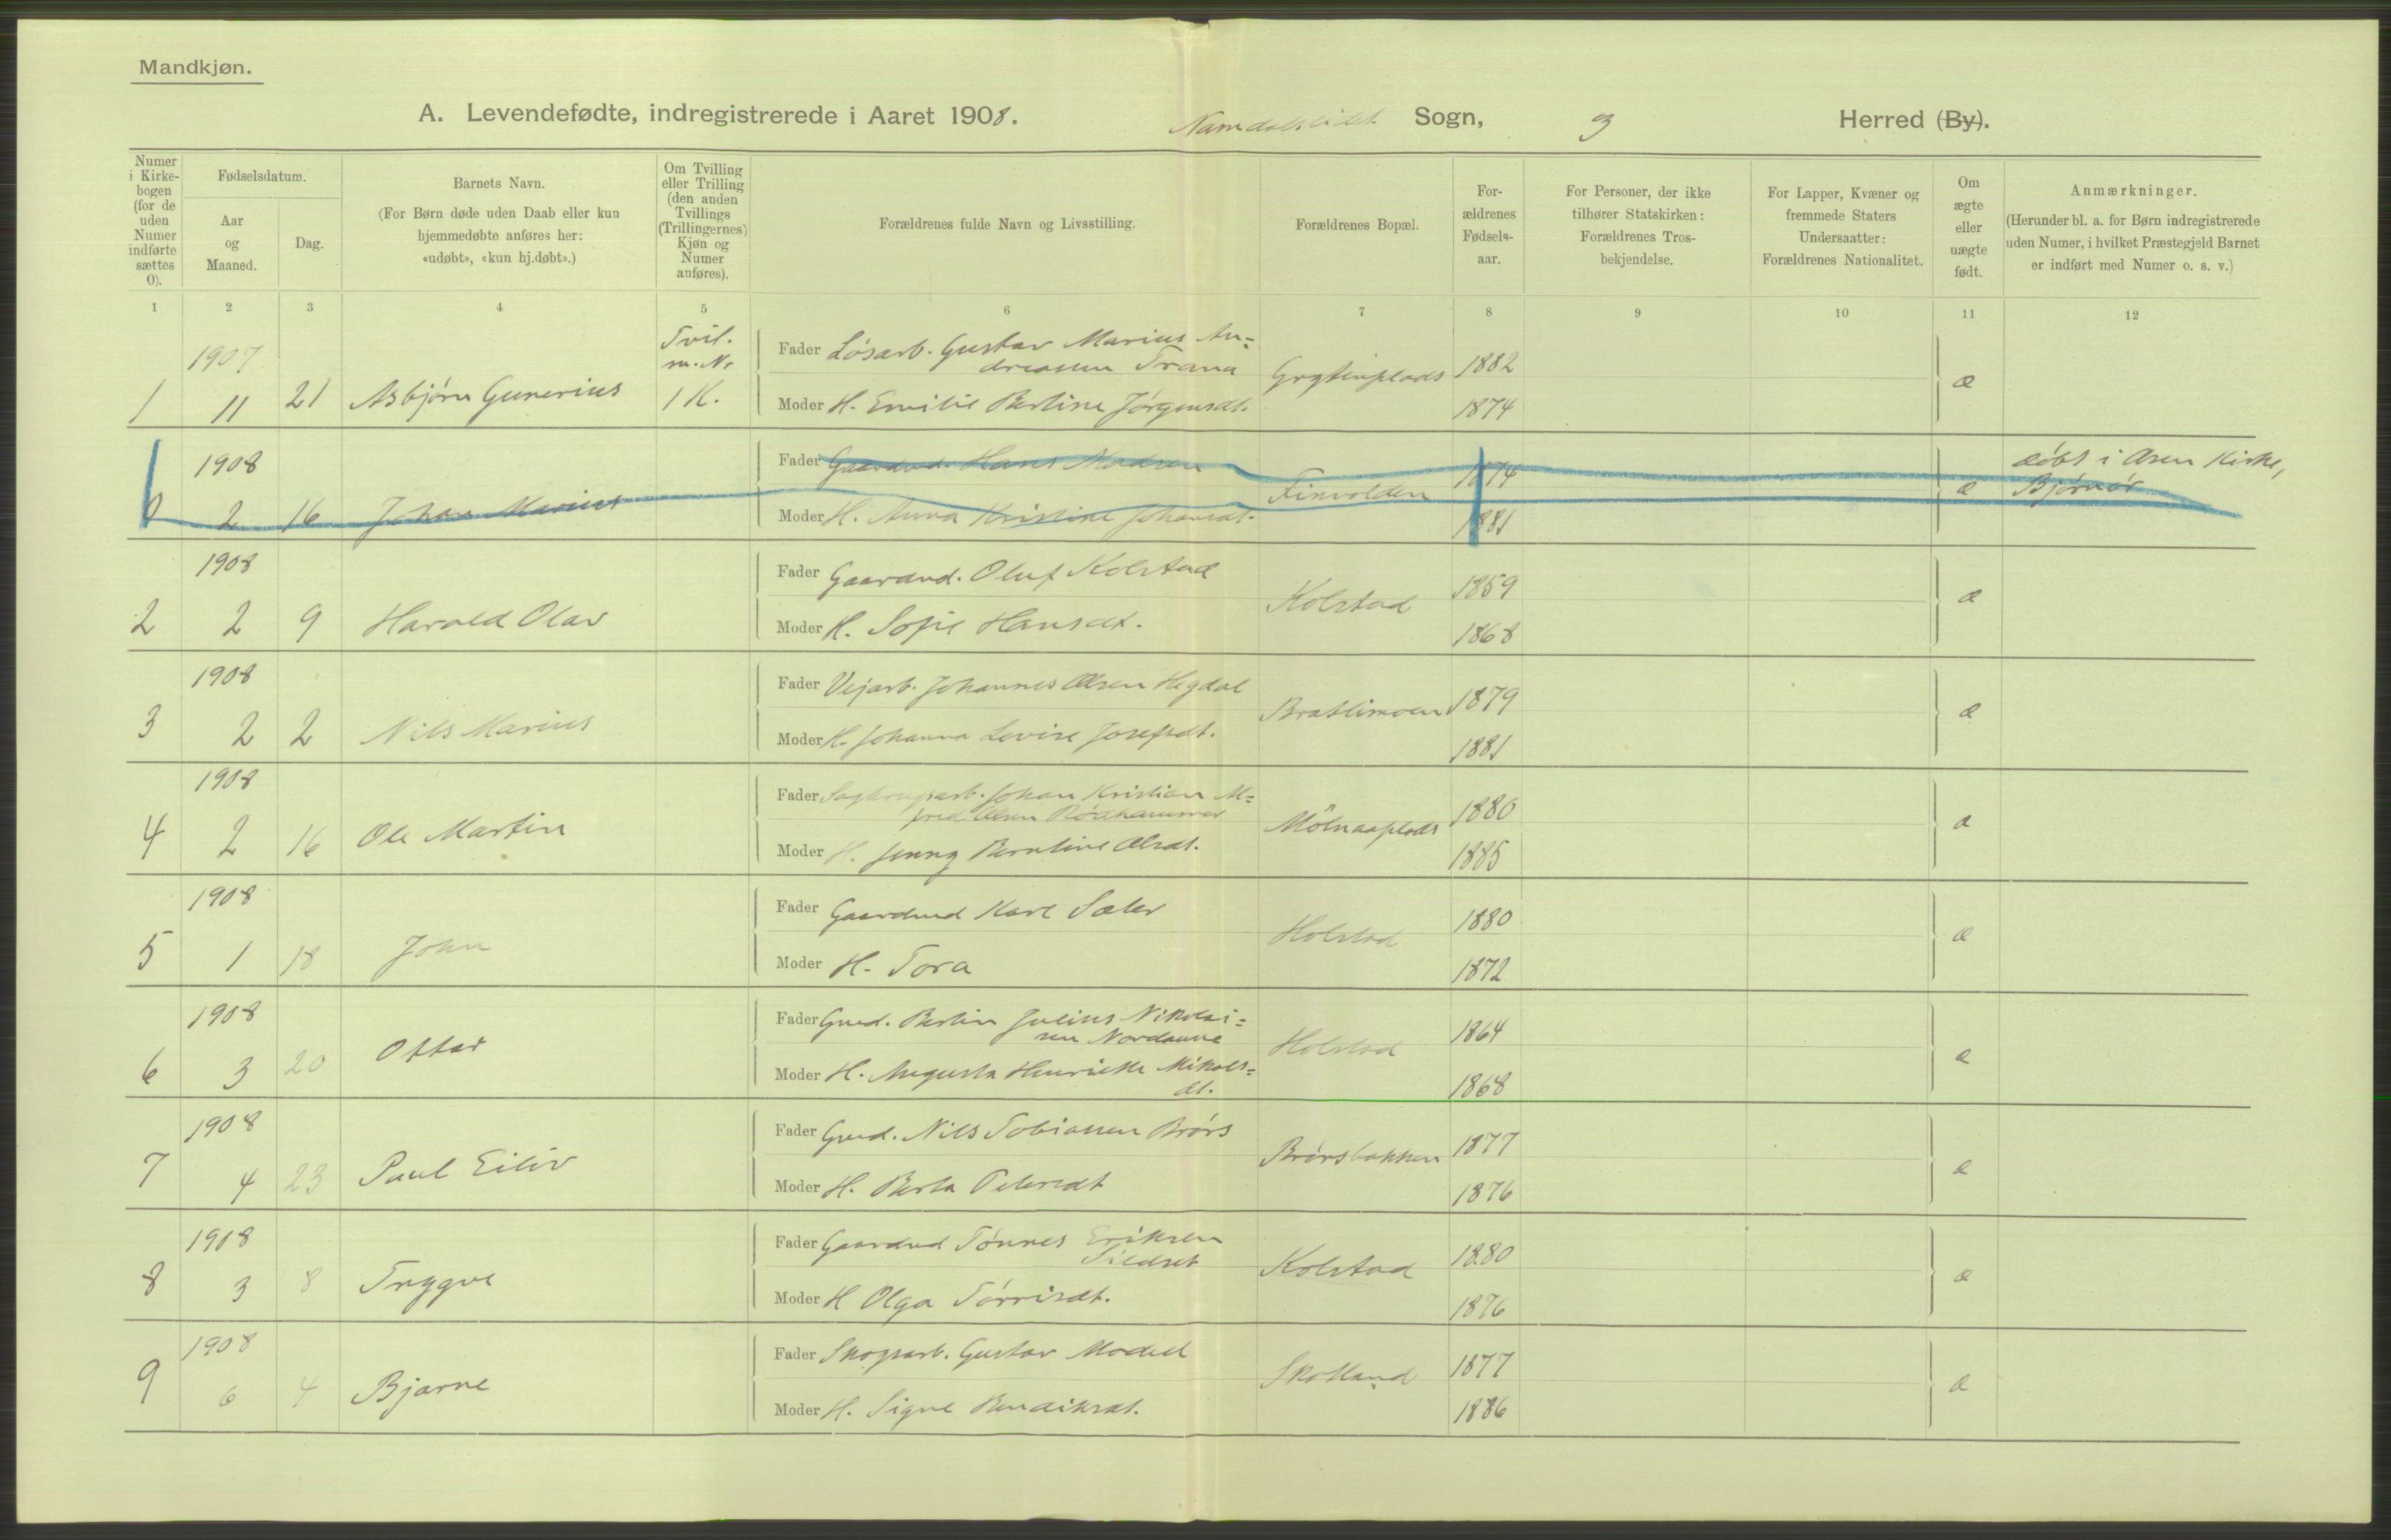 Mandkjøn.
A. Levendefødte, indregistrerede i Aaret 1908. Namdalseidet Sogn, Herred (By).
Numer i Kirkebogen (for de uden Numer indførte sættes 0).
Fødselsdatum.
Aar og Maaned.
Dag.
Barnets Navn.
(For Børn døde uden Daab eller kun hjemmedøbte anføres her: «udøbt», «kun hj.døbt».)
Om Tvilling eller Trilling (den anden Tvillings (Trillingernes) Kjøn og Numer anføres).
Forældrenes fulde Navn og Livsstilling.
Forældrenes Bopæl.
Forældrenes Fødselsaar.
For Personer, der ikke tilhører Statskirken: Forældrenes Trosbekjendelse.
For Lapper, Kvæner og fremmede Staters Undersaatter: Forældrenes Nationalitet.
Om ægte eller uægte født.
Anmærkninger.
(Herunder bl. a. for Børn indregistrerede uden Numer, i hvilket Præstegjeld Barnet er indført med Numer o. s. v.)
1 2 3 4 5 6 7 8 9 10 11 12
1 1907 11 21 Asbjørn Gunerius Tvil. m. N. 1 K.
Fader Løsarb. Gustav Marius An=
dreassen Trana 1882
Moder H. Emilie Berline Jørgensdt. 1874
æ
0 1908 2 16 Johan Marius
Fader Gaardmd. Hans Madsen Finvolden 1874
Moder H. Anna Kristine Johansdt. 1881
æ døbt i Osen Kirke,
Bjørnør
2 1908 2 9 Harald Olav
Fader Gaardmd. Oluf Kolstad Kolstad 1859
Moder H. Sofie Hansdt. 1868
æ
3 1908 2 2 Nils Marius
Fader Vejarb. Johannes Olsen Hegdal Bratlimoen 1879
Moder H. Johanna Lovise Josefsdt. 1881
æ
4 1908 2 16 Ole Martin
Fader Johan Kristian Al=
fred Olsen Rødhammer Mølnaaplads 1880
Moder H. Jenny Berntine Olsdt. 1885
æ
5 1908 1 18 John
Fader Gaardmd Karl Sæter Holstad 1880
Moder H. Tora 1872
æ
6 1908 3 20 Ottar
Fader Gmd. Bertin Julius Nikolai=
sen Nordaune Holstad 1864
Moder H. Augusta Henrikke Mikals=
dt. 1868
æ
7 1908 4 23 Paul Eiliv
Fader Gmd. Nils Tobiassen Brørs Brørsbakken 1877
Moder H. Berta Petersdt 1876
æ
8 1908 3 8 Trygve
Fader Gaardmd Tønnes Eriksen
Sildset Kolstad 1880
Moder H Olga Tørrisdt. 1876
æ
9 1908 6 4 Bjarne
Fader Skogsarb. Gustav Modell Skotland 1877
Moder H. Signe Bendiksdt. 1886
æ